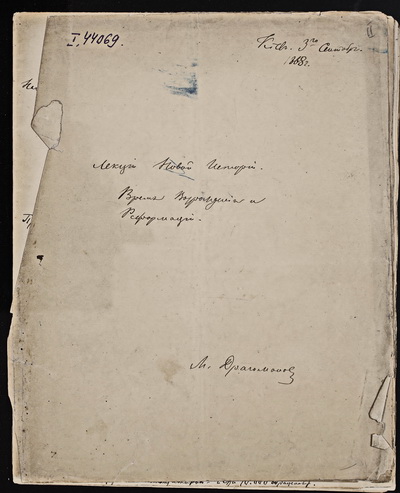 I, 44069.
Кіев. 3го Сентябр.
186 г.
Лекціи Новой Исторіи.
Время Возрожденія и
Реформаціи.
М. Драгоманов